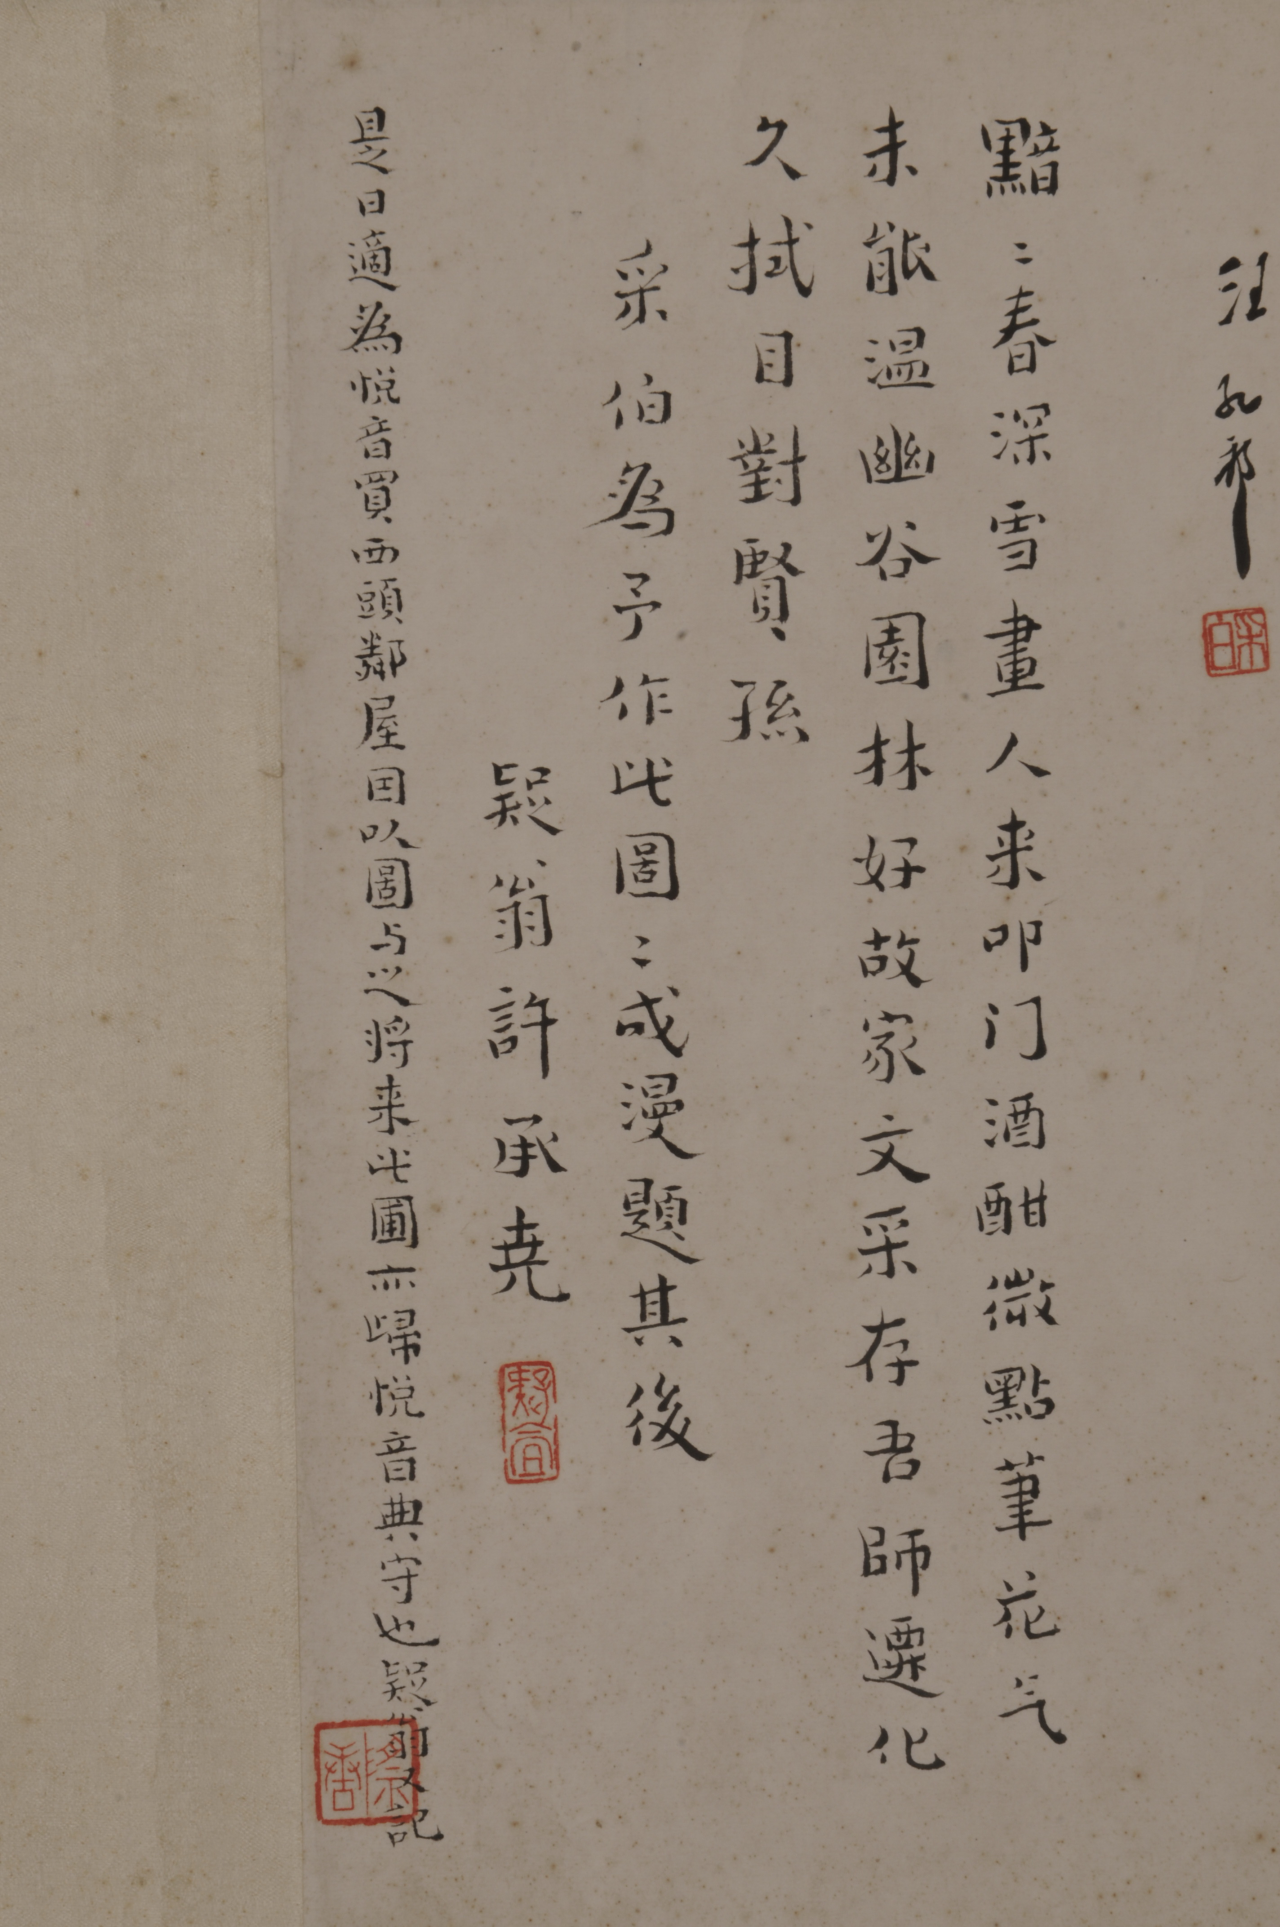 汪孔祁
采白
黯〻春深雪畫人来叩门酒酣微點筆花气
未能温幽谷園林好故家文采存吾師遷化
久拭目對賢孫
采伯為予作此圖〻成漫題其後
疑翁許承堯
疑盦
是日適為悦音買西頭鄰屋因以圖与之将来此圃亦歸悦音典守也疑翁又記